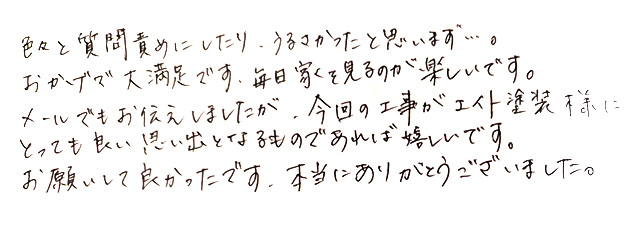 色々と質問責めにしたり、うるさかったと思います…。
おかげで大満足です、毎日家を見るのが楽しいです。
メールでもお伝えしましたが、今回の工事がエイト塗装様に
とっても良い思い出となるものであれば嬉しいです。
お願いして良かったです、本当にありがとうございました。